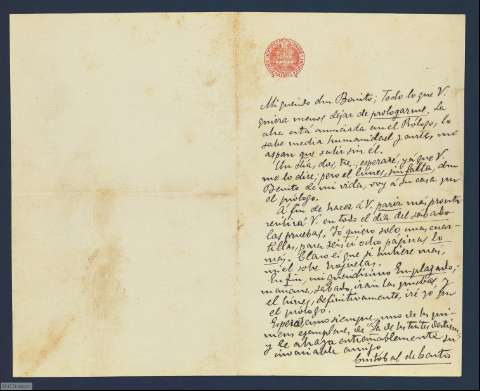 Mi querido don Benito: Todo lo que V.
quiera menos dejar de prologarme. La
obra está anunciada en el Prólogo, lo
sabe media humanidad y antes me
aspan que salir sin él.
Un día, dos, tres, esperaré, ya que V.
me lo dice; pero el lunes, sin falta, don
Benito de mi vida, voy á su casa por
el prólogo.
A fin de hacer á V. parir mas pronto
remitiré á V. en todo el día del sábado
las pruebas. Yo quiero solo unas cuar-
tillas, para seis ú ocho páginas lo
mas. Claro es que si hubiere mas,
miel sobre hojuelas.
En fin, mi queridísimo
mañana, sábado, irán las pruebas y
el lunes, definitivamente, iré yo por
el prólogo.
como siempre, uno de los pri-
meros ejemplares, de
y le abraza entrañablemente su
invariable amigo
Cristobal de Castro